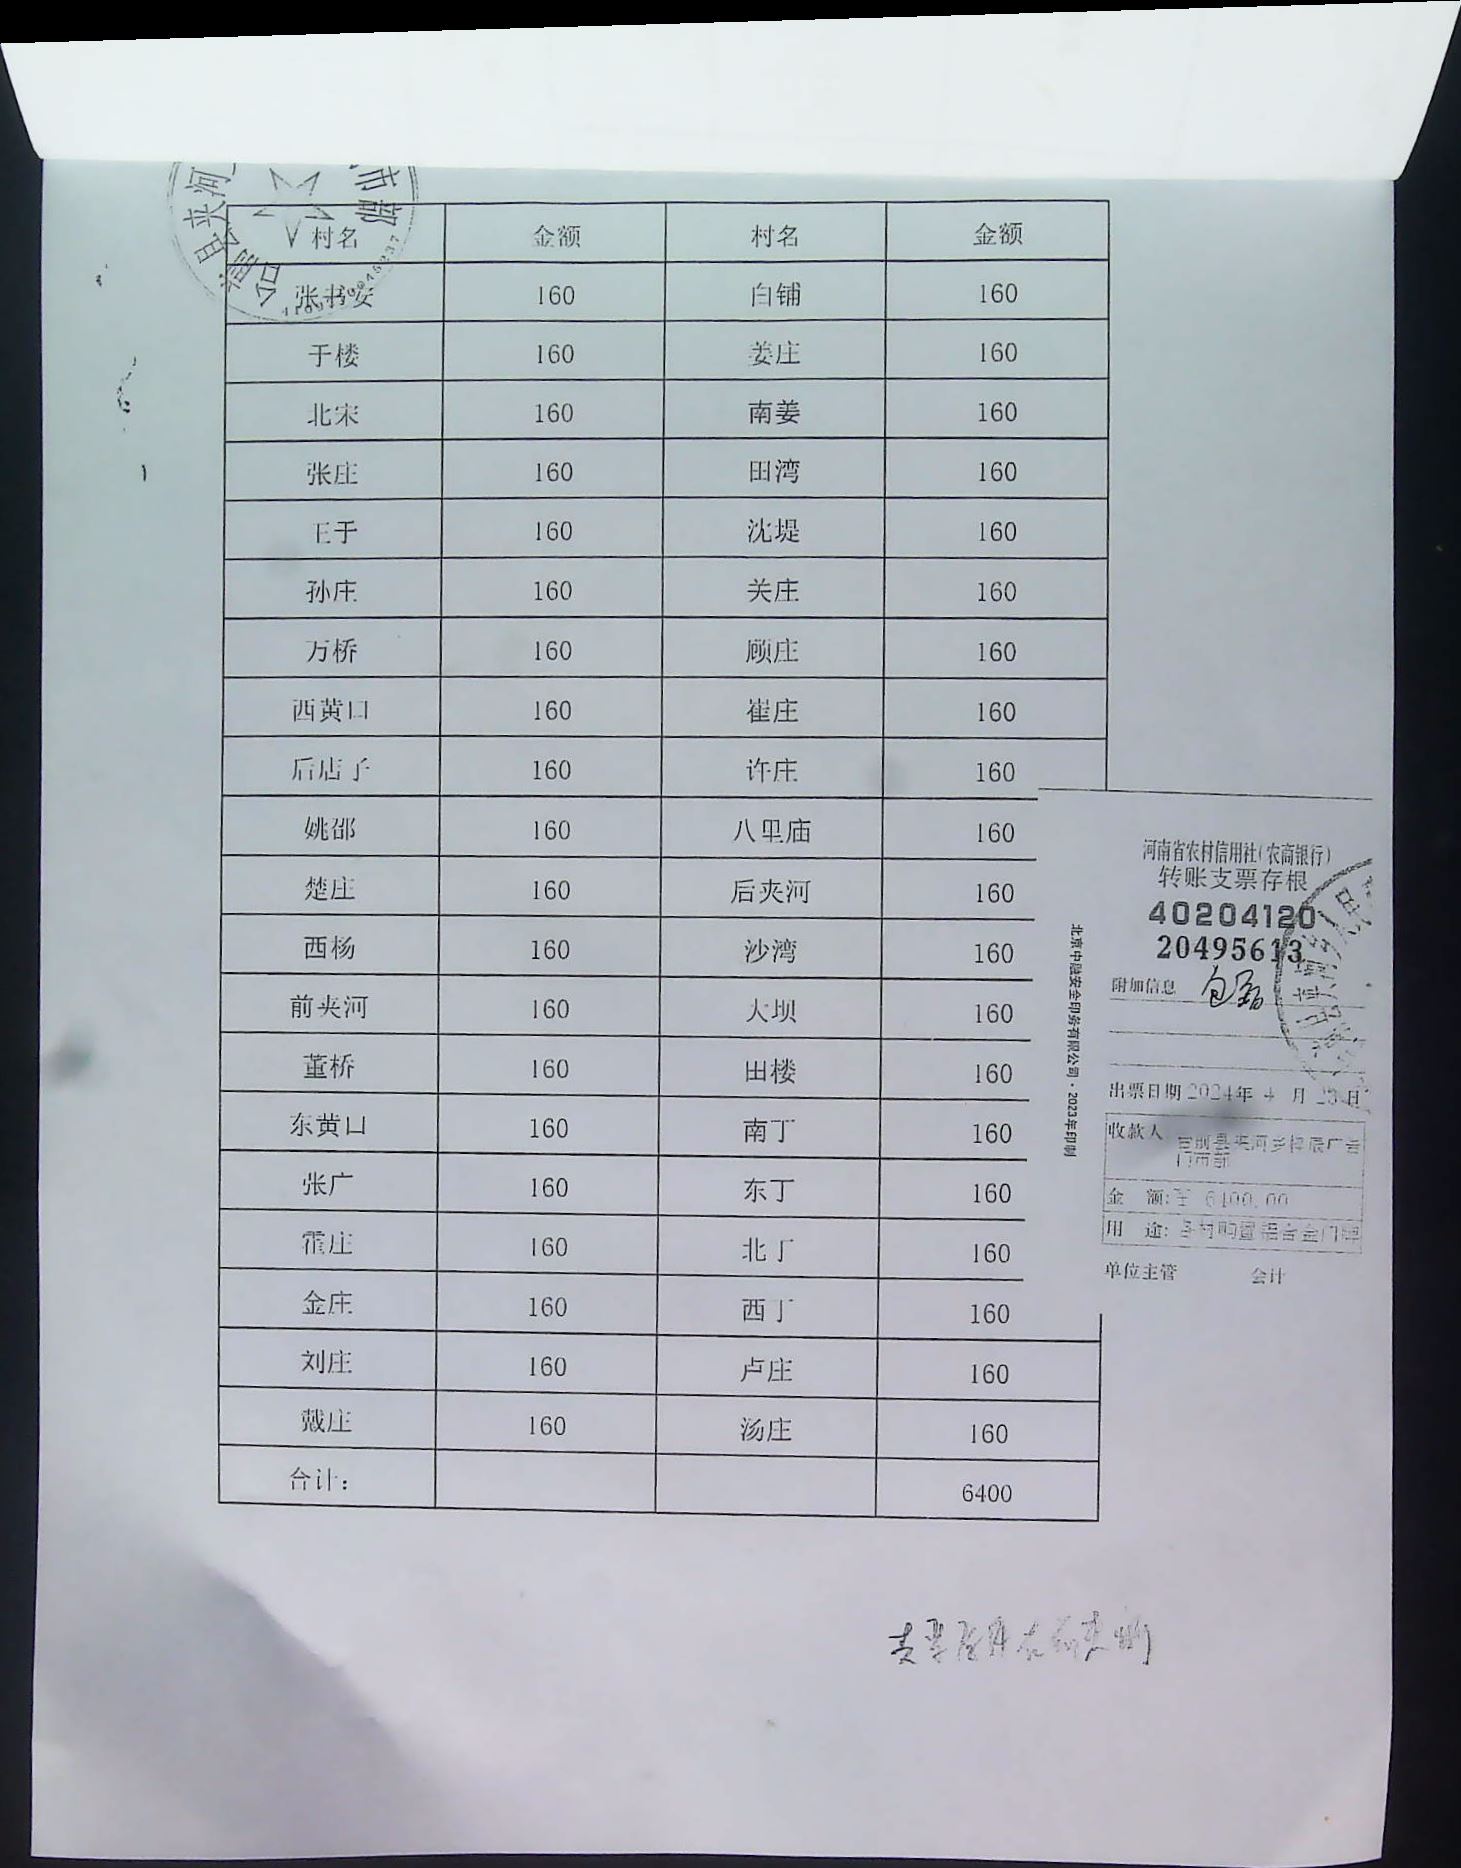 村名 金额 村名 金额
张书安 160 白铺 160
于楼 160 姜庄 160
北宋 160 南姜 160
张庄 160 田湾 160
王于 160 沈堤 160
孙庄 160 关庄 160
万桥 160 顾庄 160
西黄口 160 崔庄 160
后店子 160 许庄 160
姚邵 160 八里庙 160
楚庄 160 后夹河 160
西杨 160 沙湾 160
前夹河 160 大坝 160
董桥 160 田楼 160
东黄口 160 南丁 160
张广 160 东丁 160
霍庄 160 北丁 160
金庄 160 西丁 160
刘庄 160 卢庄 160
戴庄 160 汤庄 160
合计： 6400
河南省农村信用社(农商银行)
转账支票存根
40204120
20495613
附加信息
出票日期 2024年 4 月 日
收款人 台前县夹河乡 广告
门市部
金 额: 6400.00
用 途: 各村购置铝合金门牌
单位主管 会计
北京中融安全印务有限公司·2023年印制